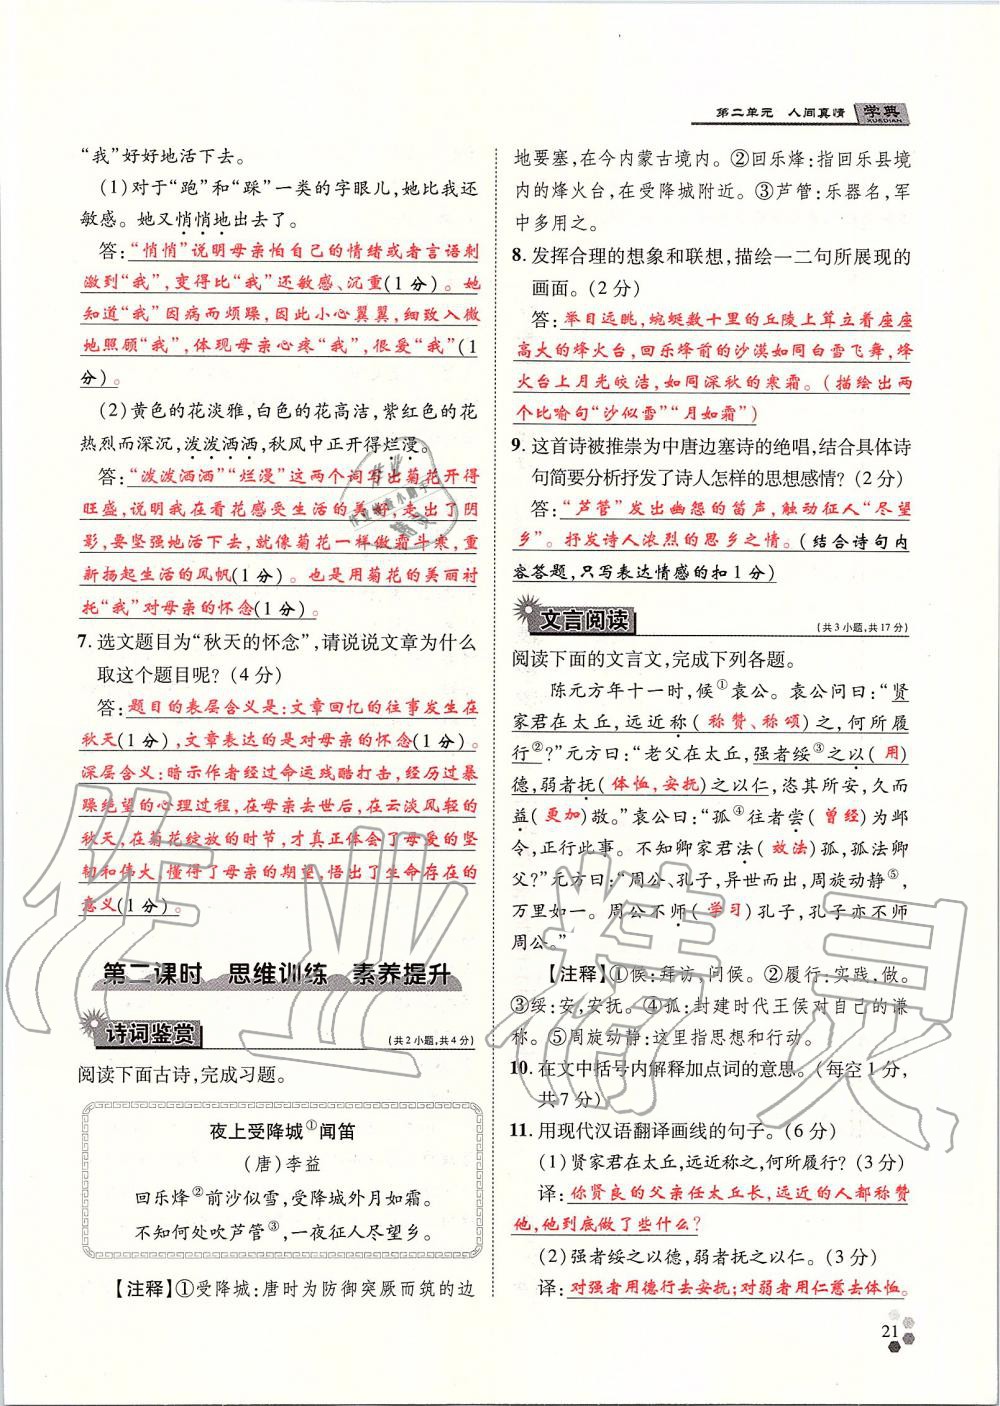 第二单元　人间真情　学典
XUEDIAN
“我”好好地活下去。
(1)对于“跑”和“踩”一类的字眼儿,她比我还
敏感。她又悄悄地出去了。
答:“悄悄”说明母亲怕自己的情绪或者言语刺
激到“我”,变得比“我”还敏感、沉重(1分)。她
知道“我”因病而烦躁,因此小心翼翼,细致入微
地照顾“我”,体现母亲心疼“我”,很爱“我”(1
分)。
(2)黄色的花淡雅,白色的花高洁,紫红色的花
热烈而深沉,泼泼洒洒,秋风中正开得烂漫。
答:“泼泼洒洒”“烂漫”这两个词写出菊花开得
旺盛,说明我在看花感受生活的美好,走出了阴
影,要坚强地活下去,就像菊花一样傲霜斗寒,重
新扬起生活的风帆(1分)。也是用菊花的美丽衬
托“我”对母亲的怀念(1分)。
7.选文题目为“秋天的怀念”,请说说文章为什么
取这个题目呢?(4分)
答:题目的表层含义是:文章回忆的往事发生在
秋天(1分),文章表达的是对母亲的怀念(1分)。
深层含义:暗示作者经过命运残酷打击,经历过暴
躁绝望的心理过程,在母亲去世后,在云淡风轻的
秋天,在菊花绽放的时节,才真正体会了母爱的坚
韧和伟大,懂得了母亲的期望,悟出了生命存在的
意义(1分)。
第二课时　思维训练　素养提升
诗词鉴赏
(共2小题,共4分)
阅读下面古诗,完成习题。
夜上受降城①闻笛
(唐)李益
回乐烽②前沙似雪,受降城外月如霜。
不知何处吹芦管③,一夜征人尽望乡。
【注释】①受降城:唐时为防御突厥而筑的边
地要塞,在今内蒙古境内。②回乐烽:指回乐县境
内的烽火台,在受降城附近。③芦管:乐器名,军
中多用之。
8.发挥合理的想象和联想,描绘一二句所展现的
画面。(2分)
答:举目远眺,蜿蜒数十里的丘陵上耸立着座座
高大的烽火台,回乐烽前的沙漠如同白雪飞舞,烽
火台上月光皎洁,如同深秋的寒霜。(描绘出两
个比喻句“沙似雪”“月如霜”)
9.这首诗被推崇为中唐边塞诗的绝唱,结合具体诗
句简要分析抒发了诗人怎样的思想感情?(2分)
答:“芦管”发出幽怨的笛声,触动征人“尽望
乡”。抒发诗人浓烈的思乡之情。(结合诗句内
容答题,只写表达情感的扣1分)
文言阅读
(共3小题,共17分)
阅读下面的文言文,完成下列各题。
陈元方年十一时,候①袁公。袁公问曰:“贤
家君在太丘,远近称(称赞、称颂)之,何所履
行②?”元方曰:“老父在太丘,强者绥③之以(用)
德,弱者抚(体恤,安抚)之以仁,恣其所安,久而
益(更加)敬。”袁公曰:“孤④往者尝(曾经)为邺
令,正行此事。不知卿家君法(效法)孤,孤法卿
父?”元方曰:“周公、孔子,异世而出,周旋动静⑤,
万里如一。周公不师(学习)孔子,孔子亦不师
周公。”
【注释】①候:拜访,问候。②履行:实践,做。
③绥:安,安抚。④孤:封建时代王侯对自己的谦
称。⑤周旋动静:这里指思想和行动。
10.在文中括号内解释加点词的意思。(每空1分,
共7分)
11.用现代汉语翻译画线的句子。(6分)
(1)贤家君在太丘,远近称之,何所履行?(3分)
译:你贤良的父亲任太丘长,远近的人都称赞
他,他到底做了些什么?
(2)强者绥之以德,弱者抚之以仁。(3分)
译:对强者用德行去安抚;对弱者用仁慈去体恤。
21
作业精灵